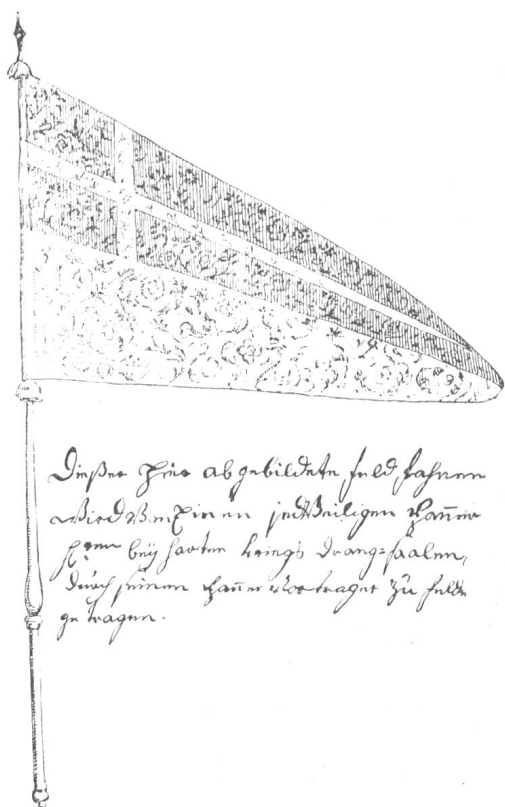 Dießer hier abgebildete feld fahnen
wird Von einen jedWeiligen Panner
H:ren bey harten kriegs drang=saalen,
durch seinen Panner Vortrager zu felde
getragen.